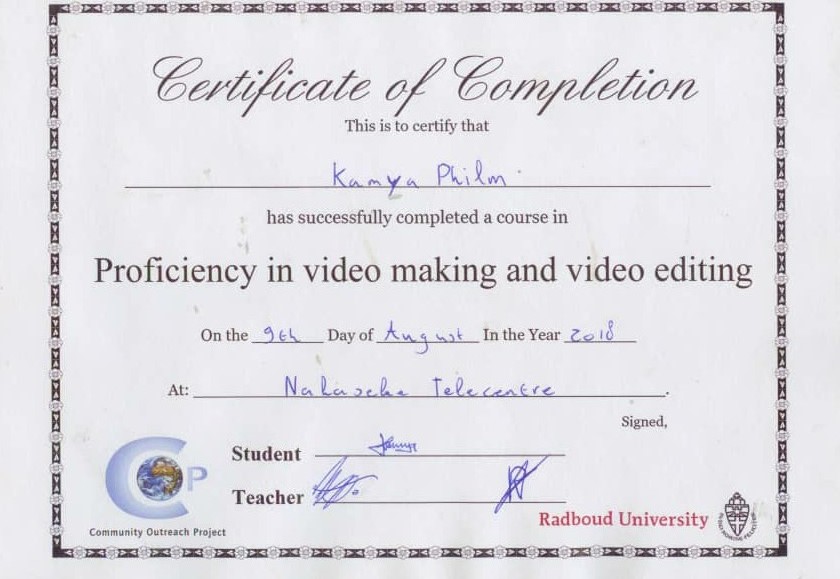 Certificate of Completion
This is to certify that
Kamya Philm
has successfully completed a course in
Proficiency in video making and video editing
On the 9th Day of August In the Year 2018
At: Nakaseke Telecentre.
Signed,
Student
Teacher
CoP
Community Outreach Project
Radboud University